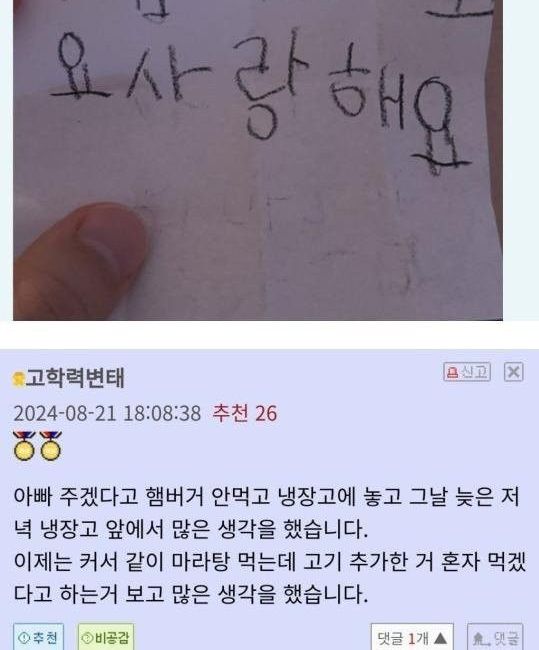 요 사랑해요
고학력변태
신고
2024-08-21 18:08:38 추천 26
아빠 주겠다고 햄버거 안먹고 냉장고에 놓고 그날 늦은 저
녁 냉장고 앞에서 많은 생각을 했습니다.
이제는 커서 같이 마라탕 먹는데 고기 추가한 거 혼자 먹겠
다고 하는거 보고 많은 생각을 했습니다.
추천 비공감 댓글 1개 ▲ 댓글